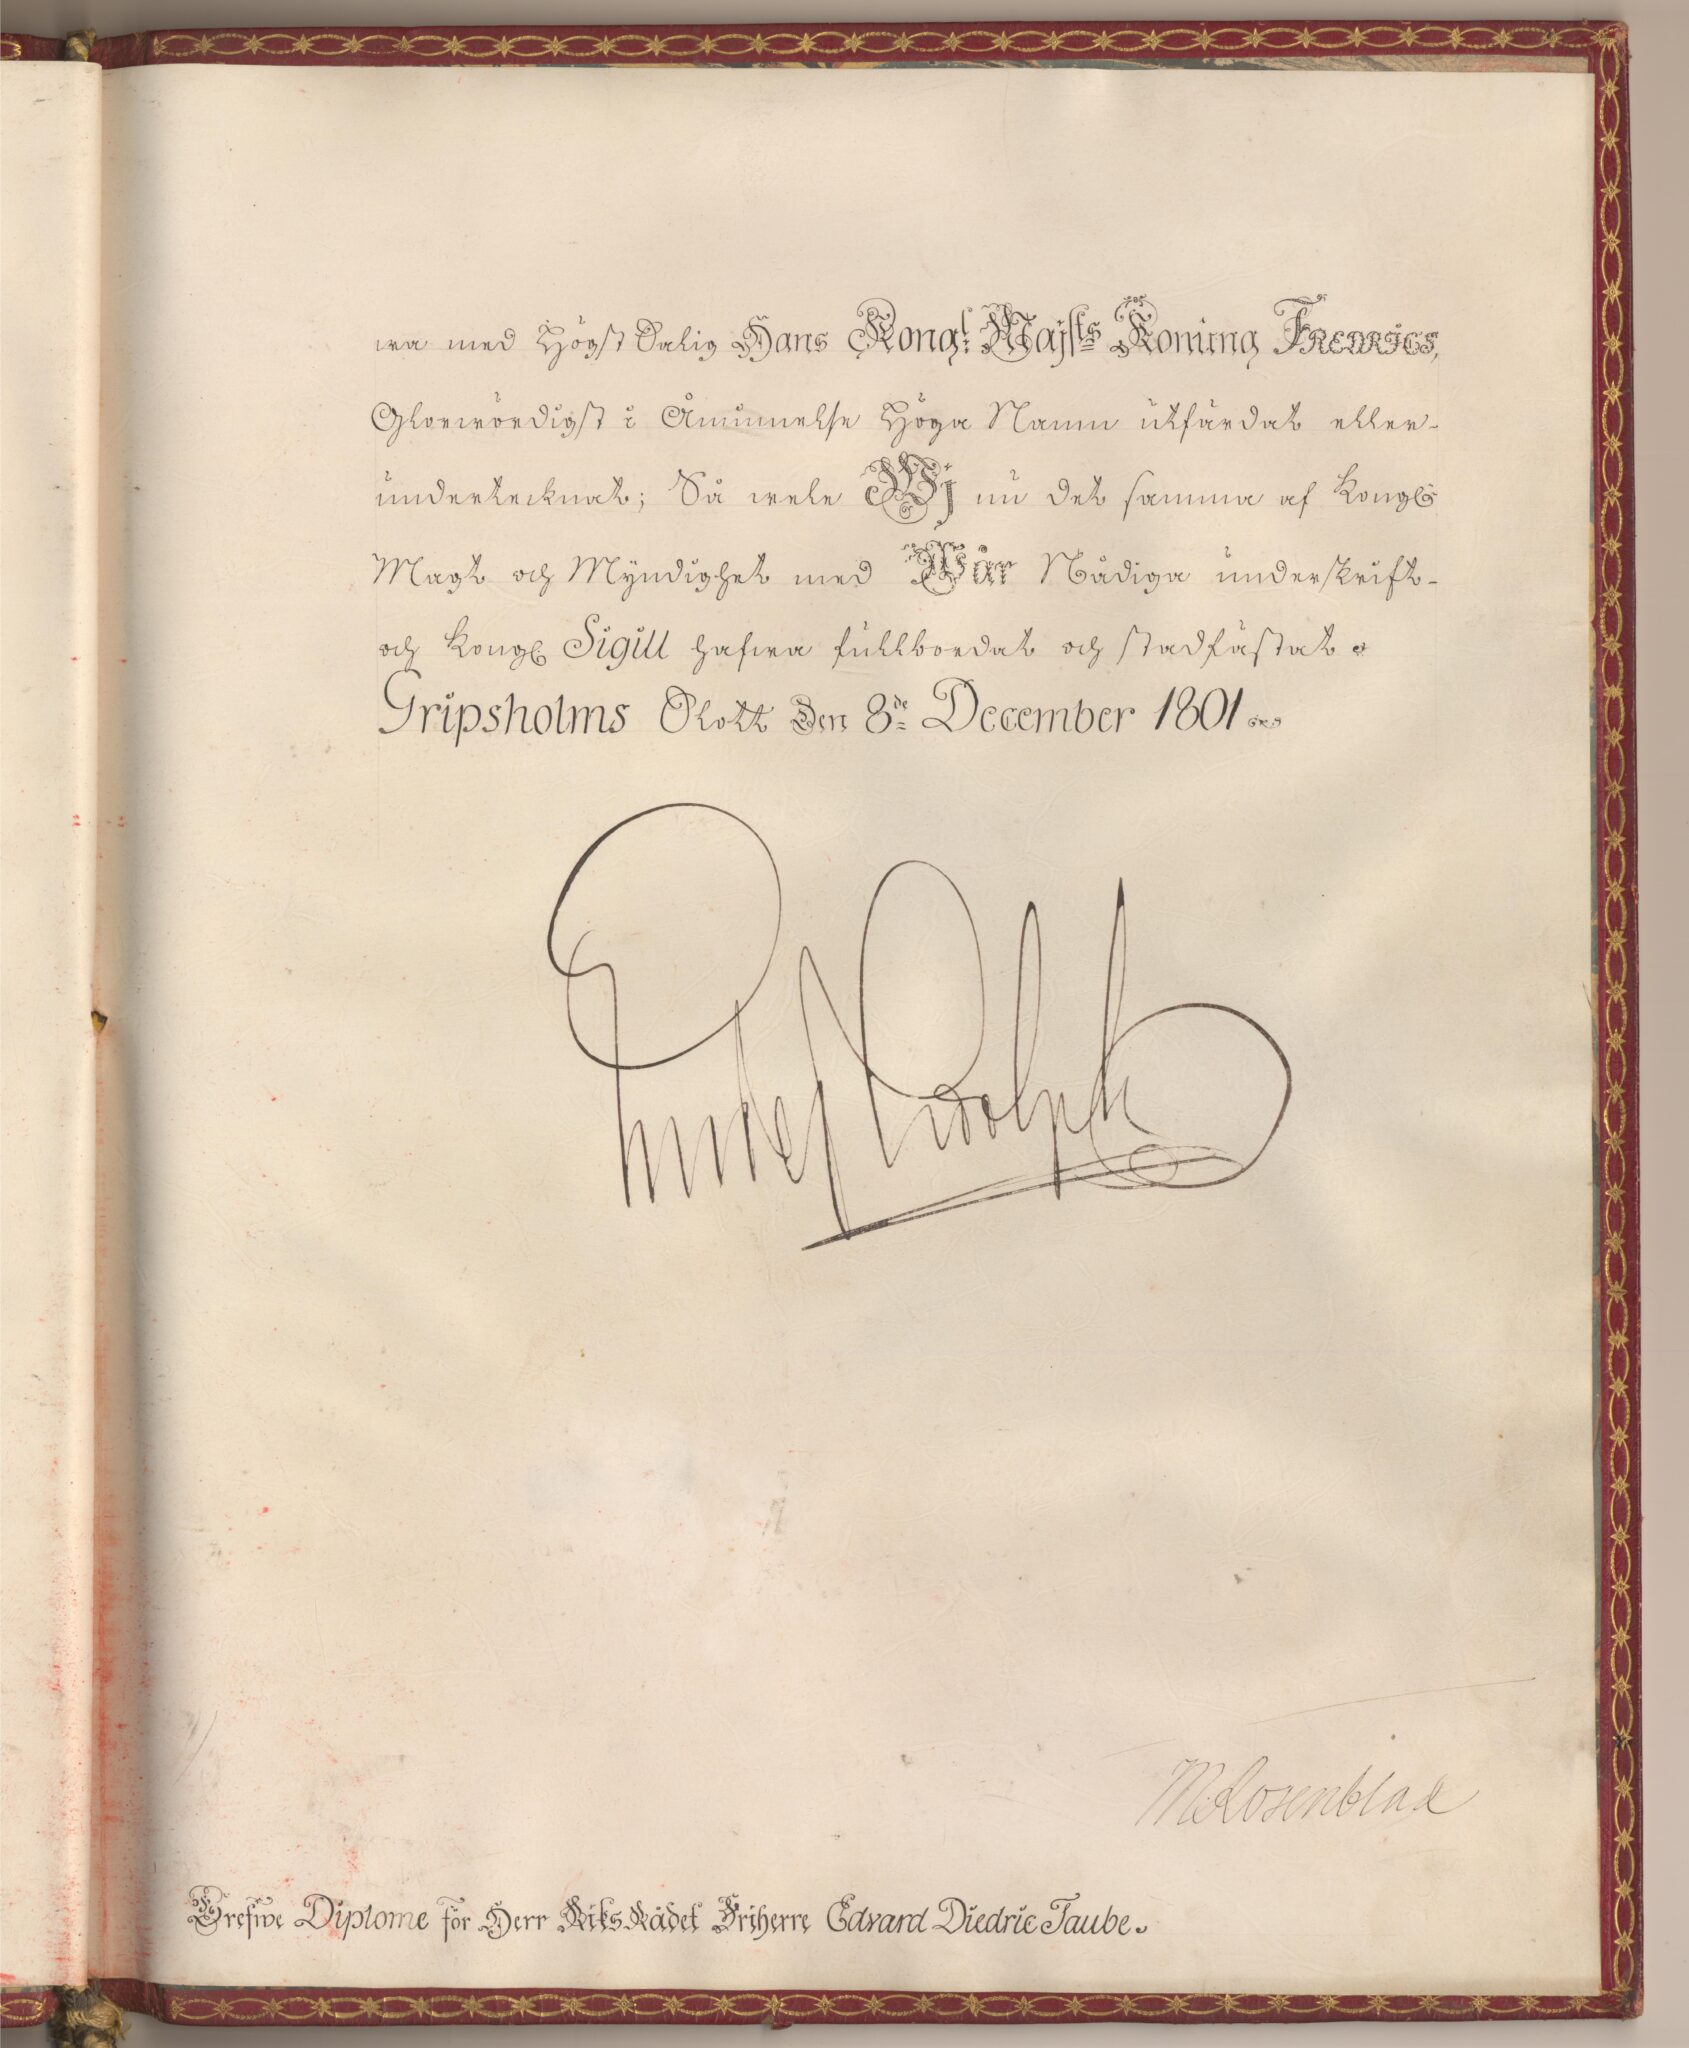 wa med Högst Salig Hans Kongl: Majsts Konung FREDRICS,
Glorwördigst i Åminnelse Höga Namn utfärdat eller
undertecknat; Så wele Wj nu det samma af Kongl
Magt och Myndighet med Wår Nådiga underskrift
och Kongl Sigill hafwa fullbordat och stadfästat
Gripsholms Slott den 8de December 1801
Gustaf Adolph
M Rosenblad
Grefwe Diplome för Herr RiksRådet Friherre Edvard Diedric Taube.